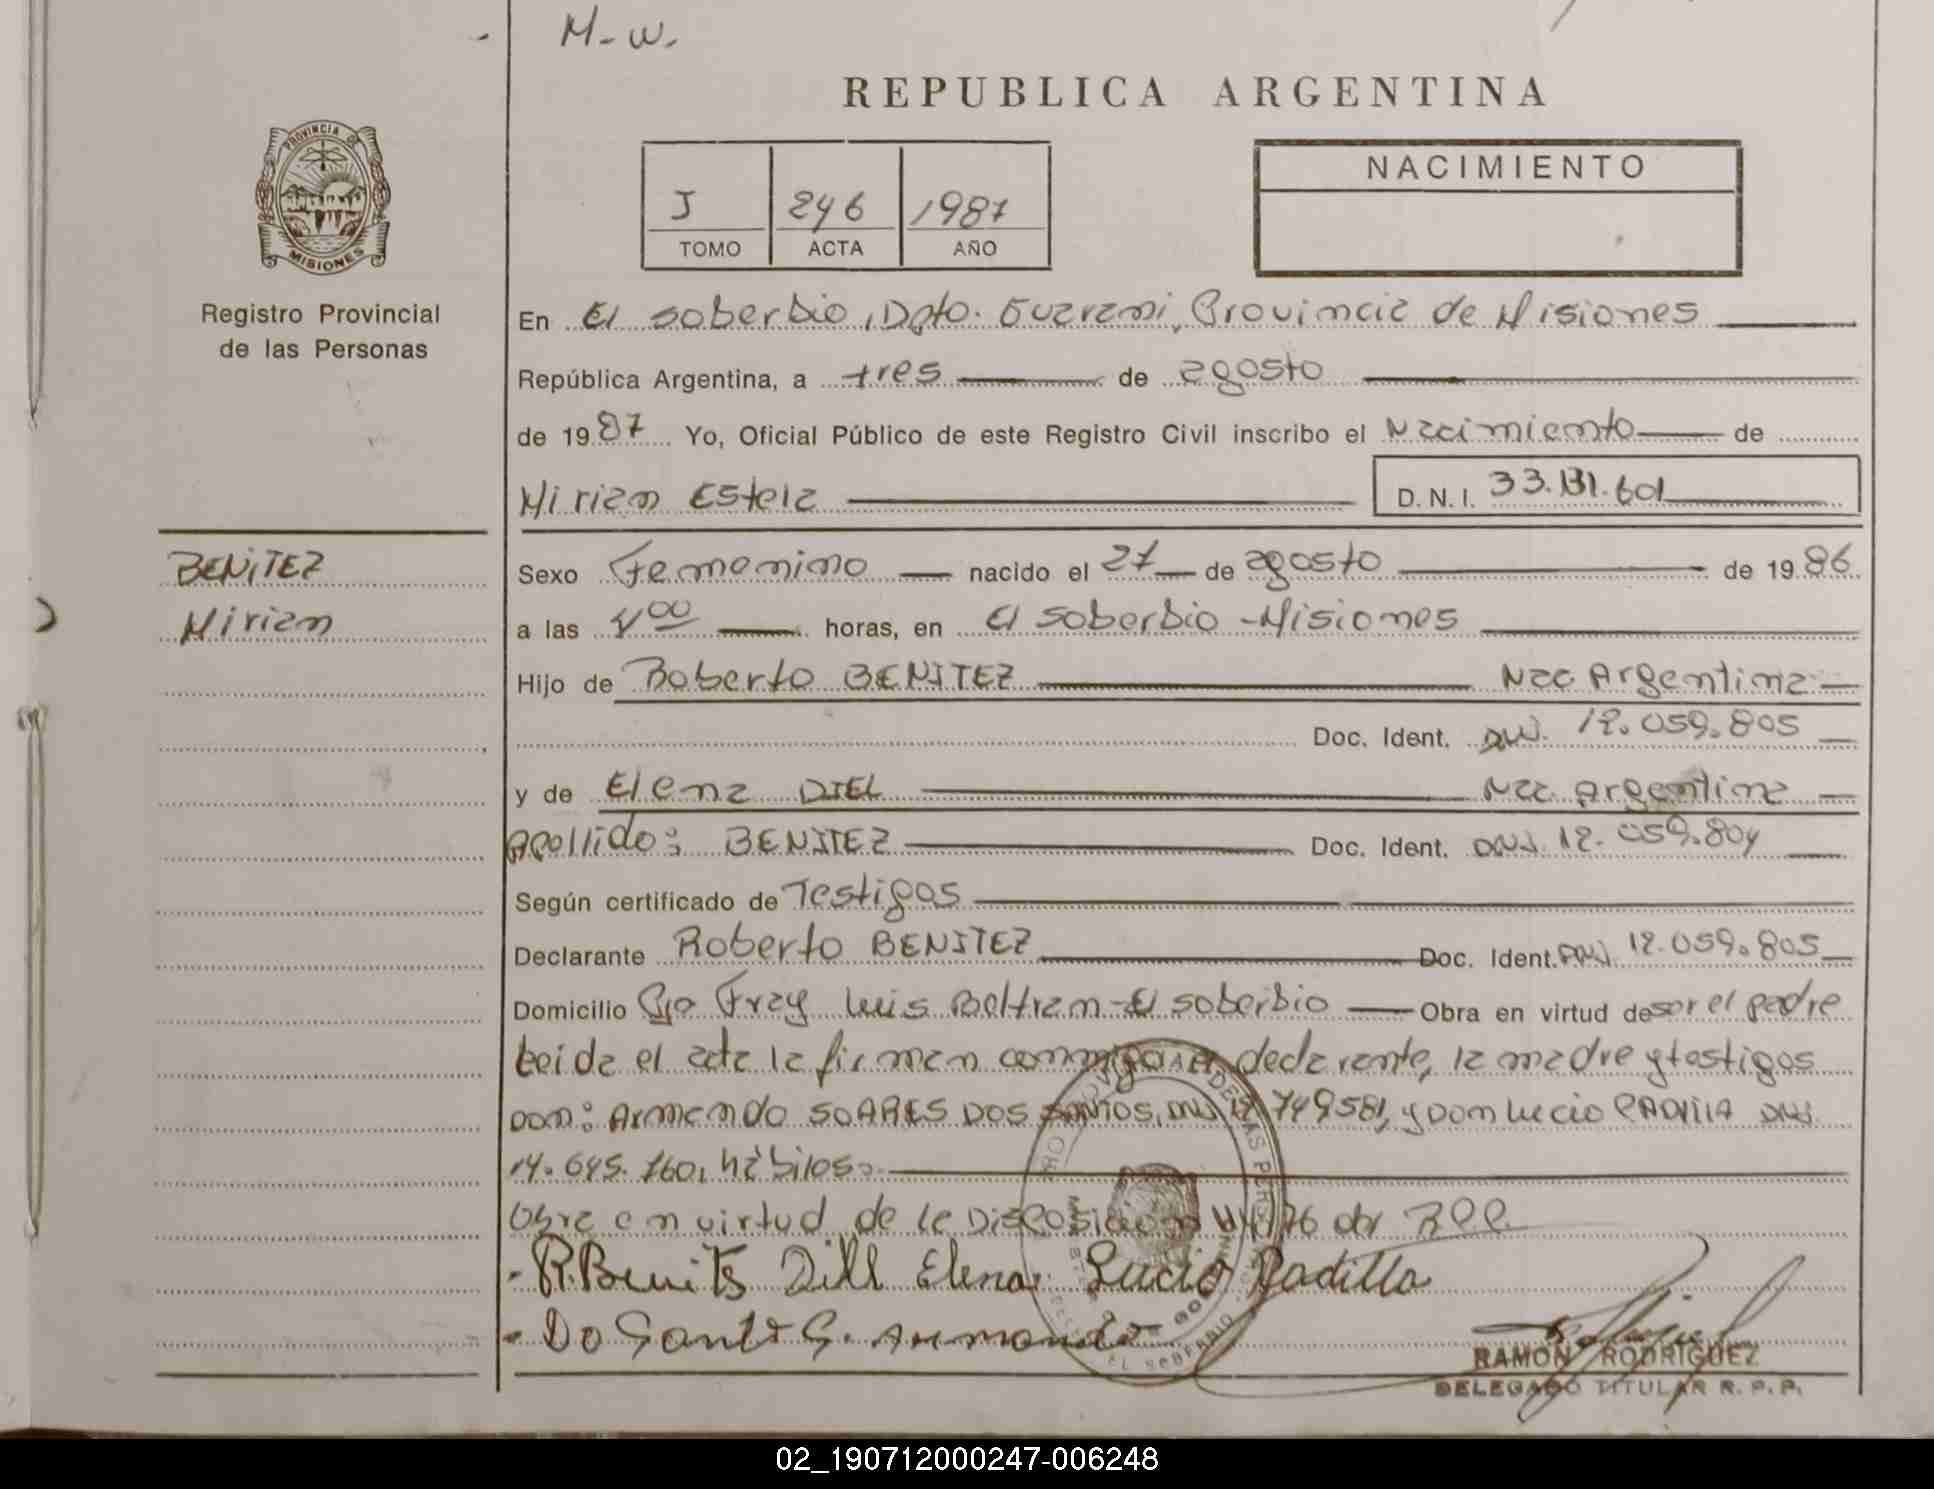 M-W.
REPUBLICA ARGENTINA
PROVINCIA DE
MISIONES
Registro Provincial
de las Personas
J 246 1987
TOMO ACTA AÑO
NACIMIENTO
En El Soberbio, Dpto. Guarani, Provincia de Misiones
República Argentina, a tres de agosto
de 1987 Yo, Oficial Público de este Registro Civil inscribo el Nacimiento de
Mirian Estela D.N.I. 33.131.601
BENITEZ
Mirian
Sexo Femenino nacido el 27 de agosto de 1986
a las 4 00 horas, en El Soberbio - Misiones
Hijo de Roberto BENITEZ Nac Argentina
Doc. Ident. DNI. 12.059.805
y de Elena DIEL Nac Argentina
Apellido: BENITEZ Doc. Ident. DNI. 12.059.804
Según certificado de Testigos
Declarante Roberto BENITEZ Doc. Ident. DNI. 12.059.805
Domicilio Fray Luis Beltran - El Soberbio Obra en virtud de ser el padre
Leida el acta la firman conmigo el declarante, la madre y testigos
Don: Armando SOARES DOS SANTOS, DNI 749581, y Don Lucio PADILLA DNI.
14.645.760, hábiles.
Obra en virtud de la Disposicion
R. Benites Dill Elena Lucio Padilla
Do Santo S. Armando
EL SOBERBIO
RAMON RODRIGUEZ
DELEGADO TITULAR R. P. P.
02_190712000247-006248